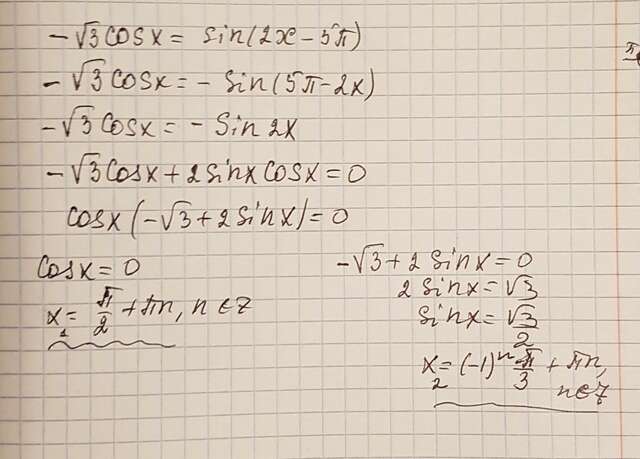 -√3 cosx = sin(2x - 5π)
-√3 cosx = - sin(5π - 2x)
-√3 cosx = - sin 2x
-√3 cosx + 2 sinx cosx = 0
cosx (-√3 + 2 sinx) = 0
cosx = 0
x₁ = π/2 + πn, n ∈ Z
-√3 + 2 sinx = 0
2 sinx = √3
sinx = √3/2
x₂ = (-1)ⁿ π/3 + πn,
n ∈ Z